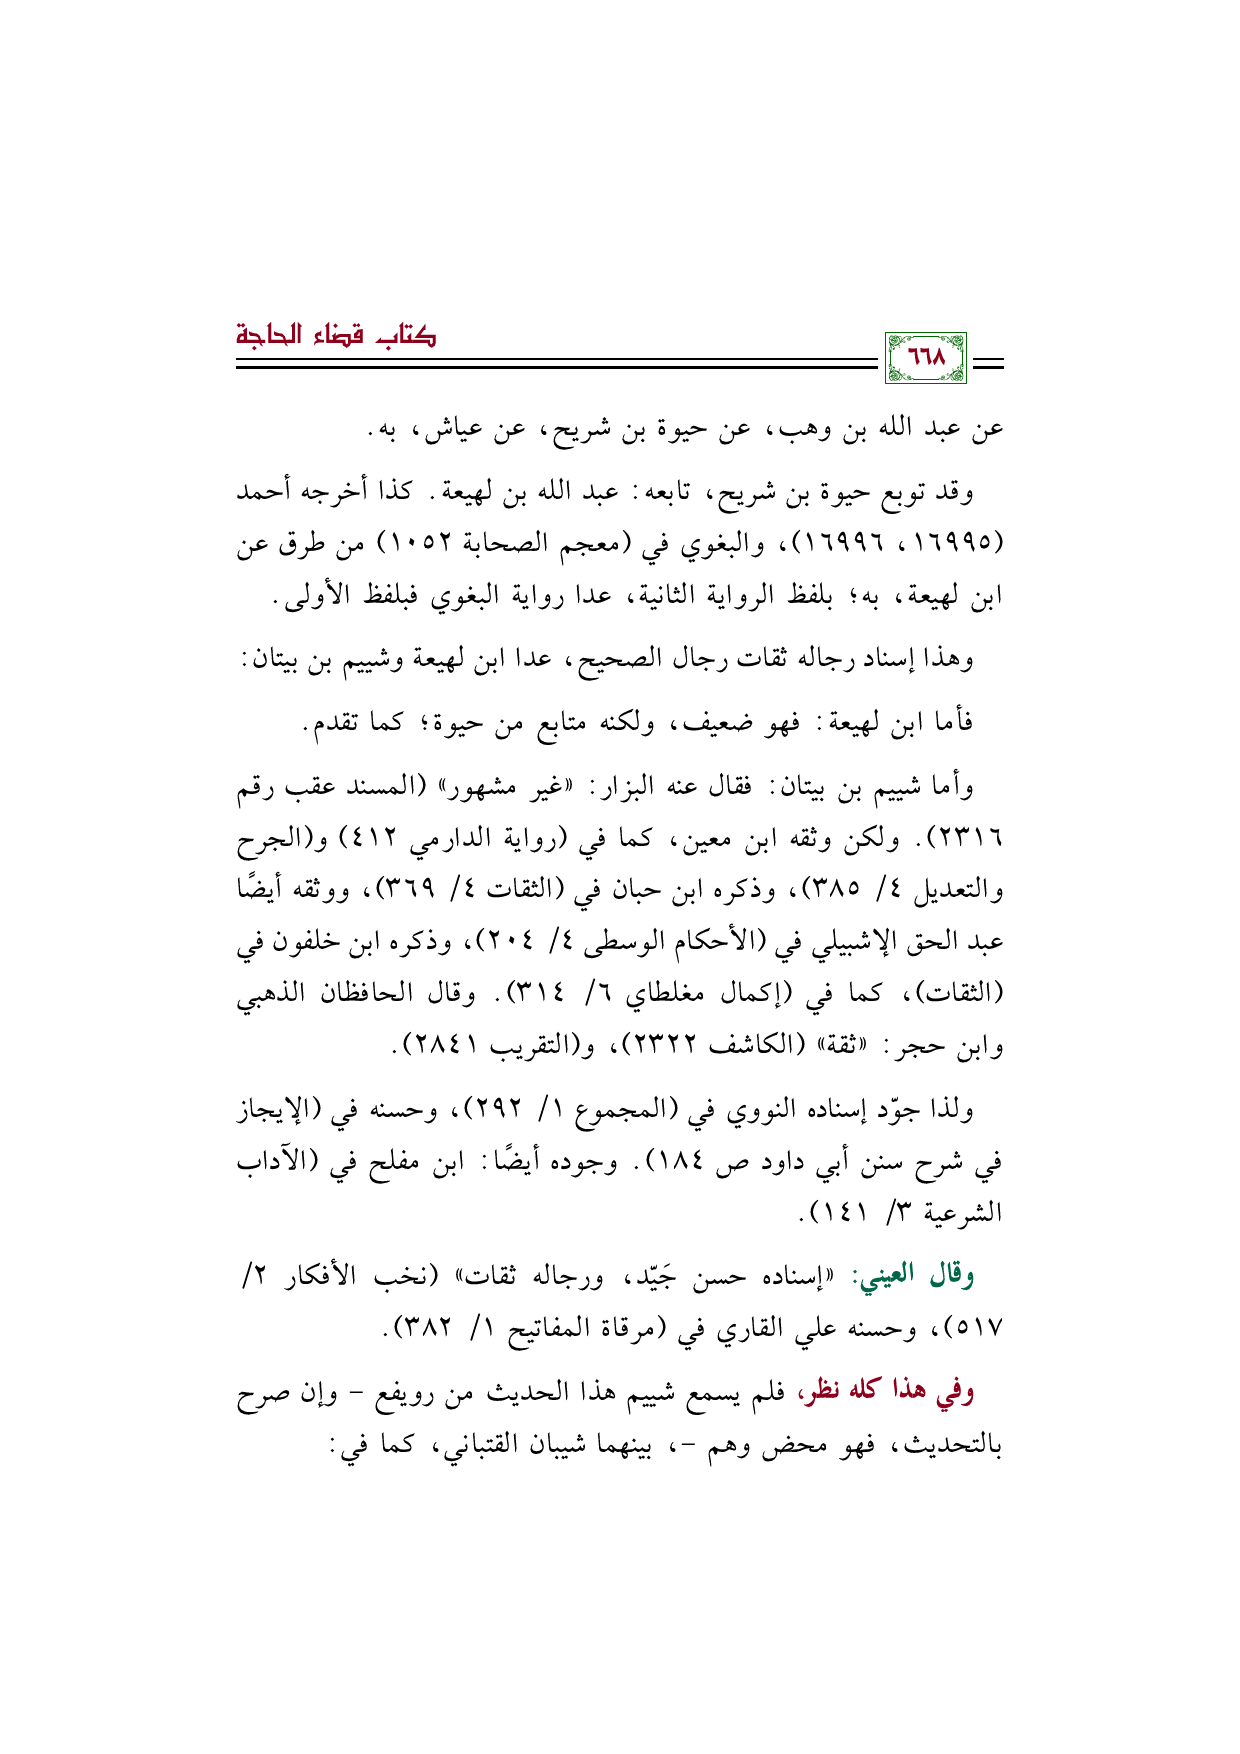 كتاب قضاء الحاجة
٦٦٨
عن عبد الله بن وهب، عن حيوة بن شريح، عن عياش، به.
وقد توبع حيوة بن شريح، تابعه: عبد الله بن لهيعة. كذا أخرجه أحمد
(١٦٩٩٥، ١٦٩٩٦)، والبغوي في (معجم الصحابة ١٠٥٢) من طرق عن
ابن لهيعة، به؛ بلفظ الرواية الثانية، عدا رواية البغوي فبلفظ الأولى.
وهذا إسناد رجاله ثقات رجال الصحيح، عدا ابن لهيعة وشييم بن بيتان:
فأما ابن لهيعة: فهو ضعيف، ولكنه متابع من حيوة؛ كما تقدم.
وأما شييم بن بيتان: فقال عنه البزار: «غير مشهور» (المسند عقب رقم
٢٣١٦). ولكن وثقه ابن معين، كما في (رواية الدارمي ٤١٢) و(الجرح
والتعديل ٤/ ٣٨٥)، وذكره ابن حبان في (الثقات ٤/ ٣٦٩)، ووثقه أيضًا
عبد الحق الإشبيلي في (الأحكام الوسطى ٤/ ٢٠٤)، وذكره ابن خلفون في
(الثقات)، كما في (إكمال مغلطاي ٦/ ٣١٤). وقال الحافظان الذهبي
وابن حجر: «ثقة» (الكاشف ٢٣٢٢)، و(التقريب ٢٨٤١).
ولذا جوّد إسناده النووي في (المجموع ١/ ٢٩٢)، وحسنه في (الإيجاز
في شرح سنن أبي داود ص ١٨٤). وجوده أيضًا: ابن مفلح في (الآداب
الشرعية ٣/ ١٤١).
وقال العيني: «إسناده حسن جَيّد، ورجاله ثقات» (نخب الأفكار ٢/
٥١٧)، وحسنه علي القاري في (مرقاة المفاتيح ١/ ٣٨٢).
وفي هذا كله نظر، فلم يسمع شييم هذا الحديث من رويفع - وإن صرح
بالتحديث، فهو محض وهم -، بينهما شيبان القتباني، كما في: